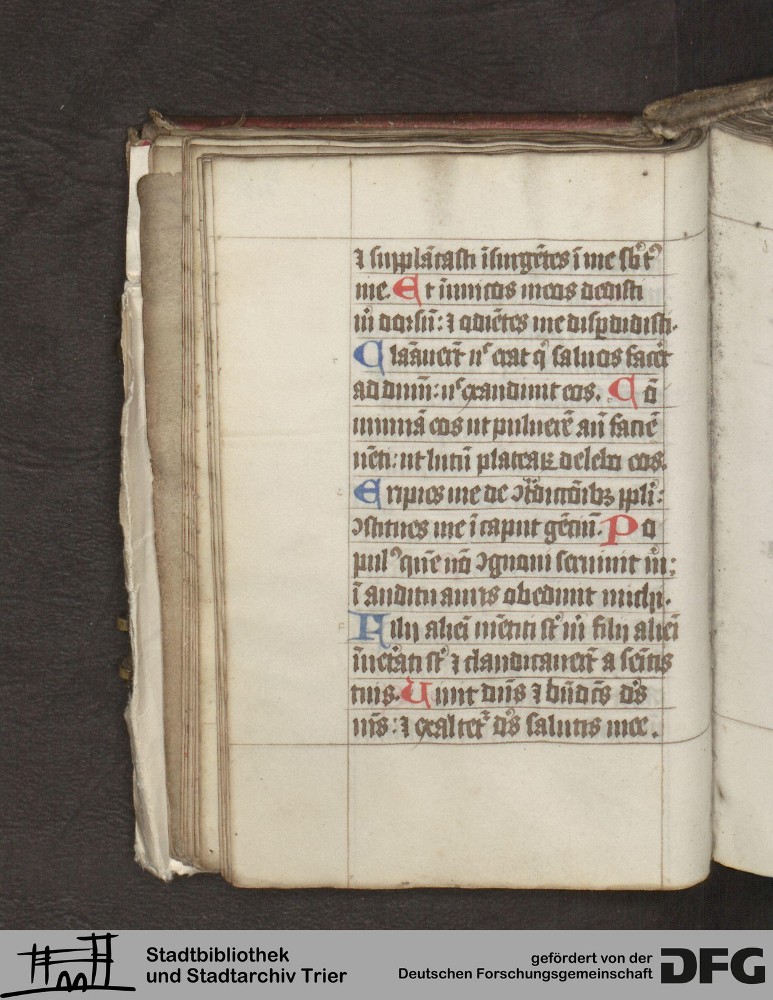 ⁊ supplātasti īsurgētes ī me sb̄t᷒
me. Et inimicos meos dedisti
m̄ dorsū: ⁊ odiētes me dispdidisti.
Clamauer̄t n᷒ erat q̄ saluos facēt
ad dn̄m: n᷒ exaudiuit eos. Cō
minuā eos ut puluerē an̄ faciē
uēti: ut lutū plateaꝝ delebo eos.
Eripies me de ꝯt̄dictōibꝫ ppli:
ꝯstitues me ī caput gētiū. Po
pul᷒ quē nō ꝯgnoui seruiuit m̄:
ī auditu auris obediuit michi.
Filij aliei mētiti st̄ m̄ filij aliei
īueterati st̄ ⁊ claudicauer̄t a semitis
tuis. Uiuit dn̄s ⁊ bn̄dc̄s ds̄
ms̄: ⁊ exaltet᷒ ds̄ salutis mee.
Stadtbibliothek
und Stadtarchiv Trier
gefördert von der
Deutschen Forschungsgemeinschaft
DFG